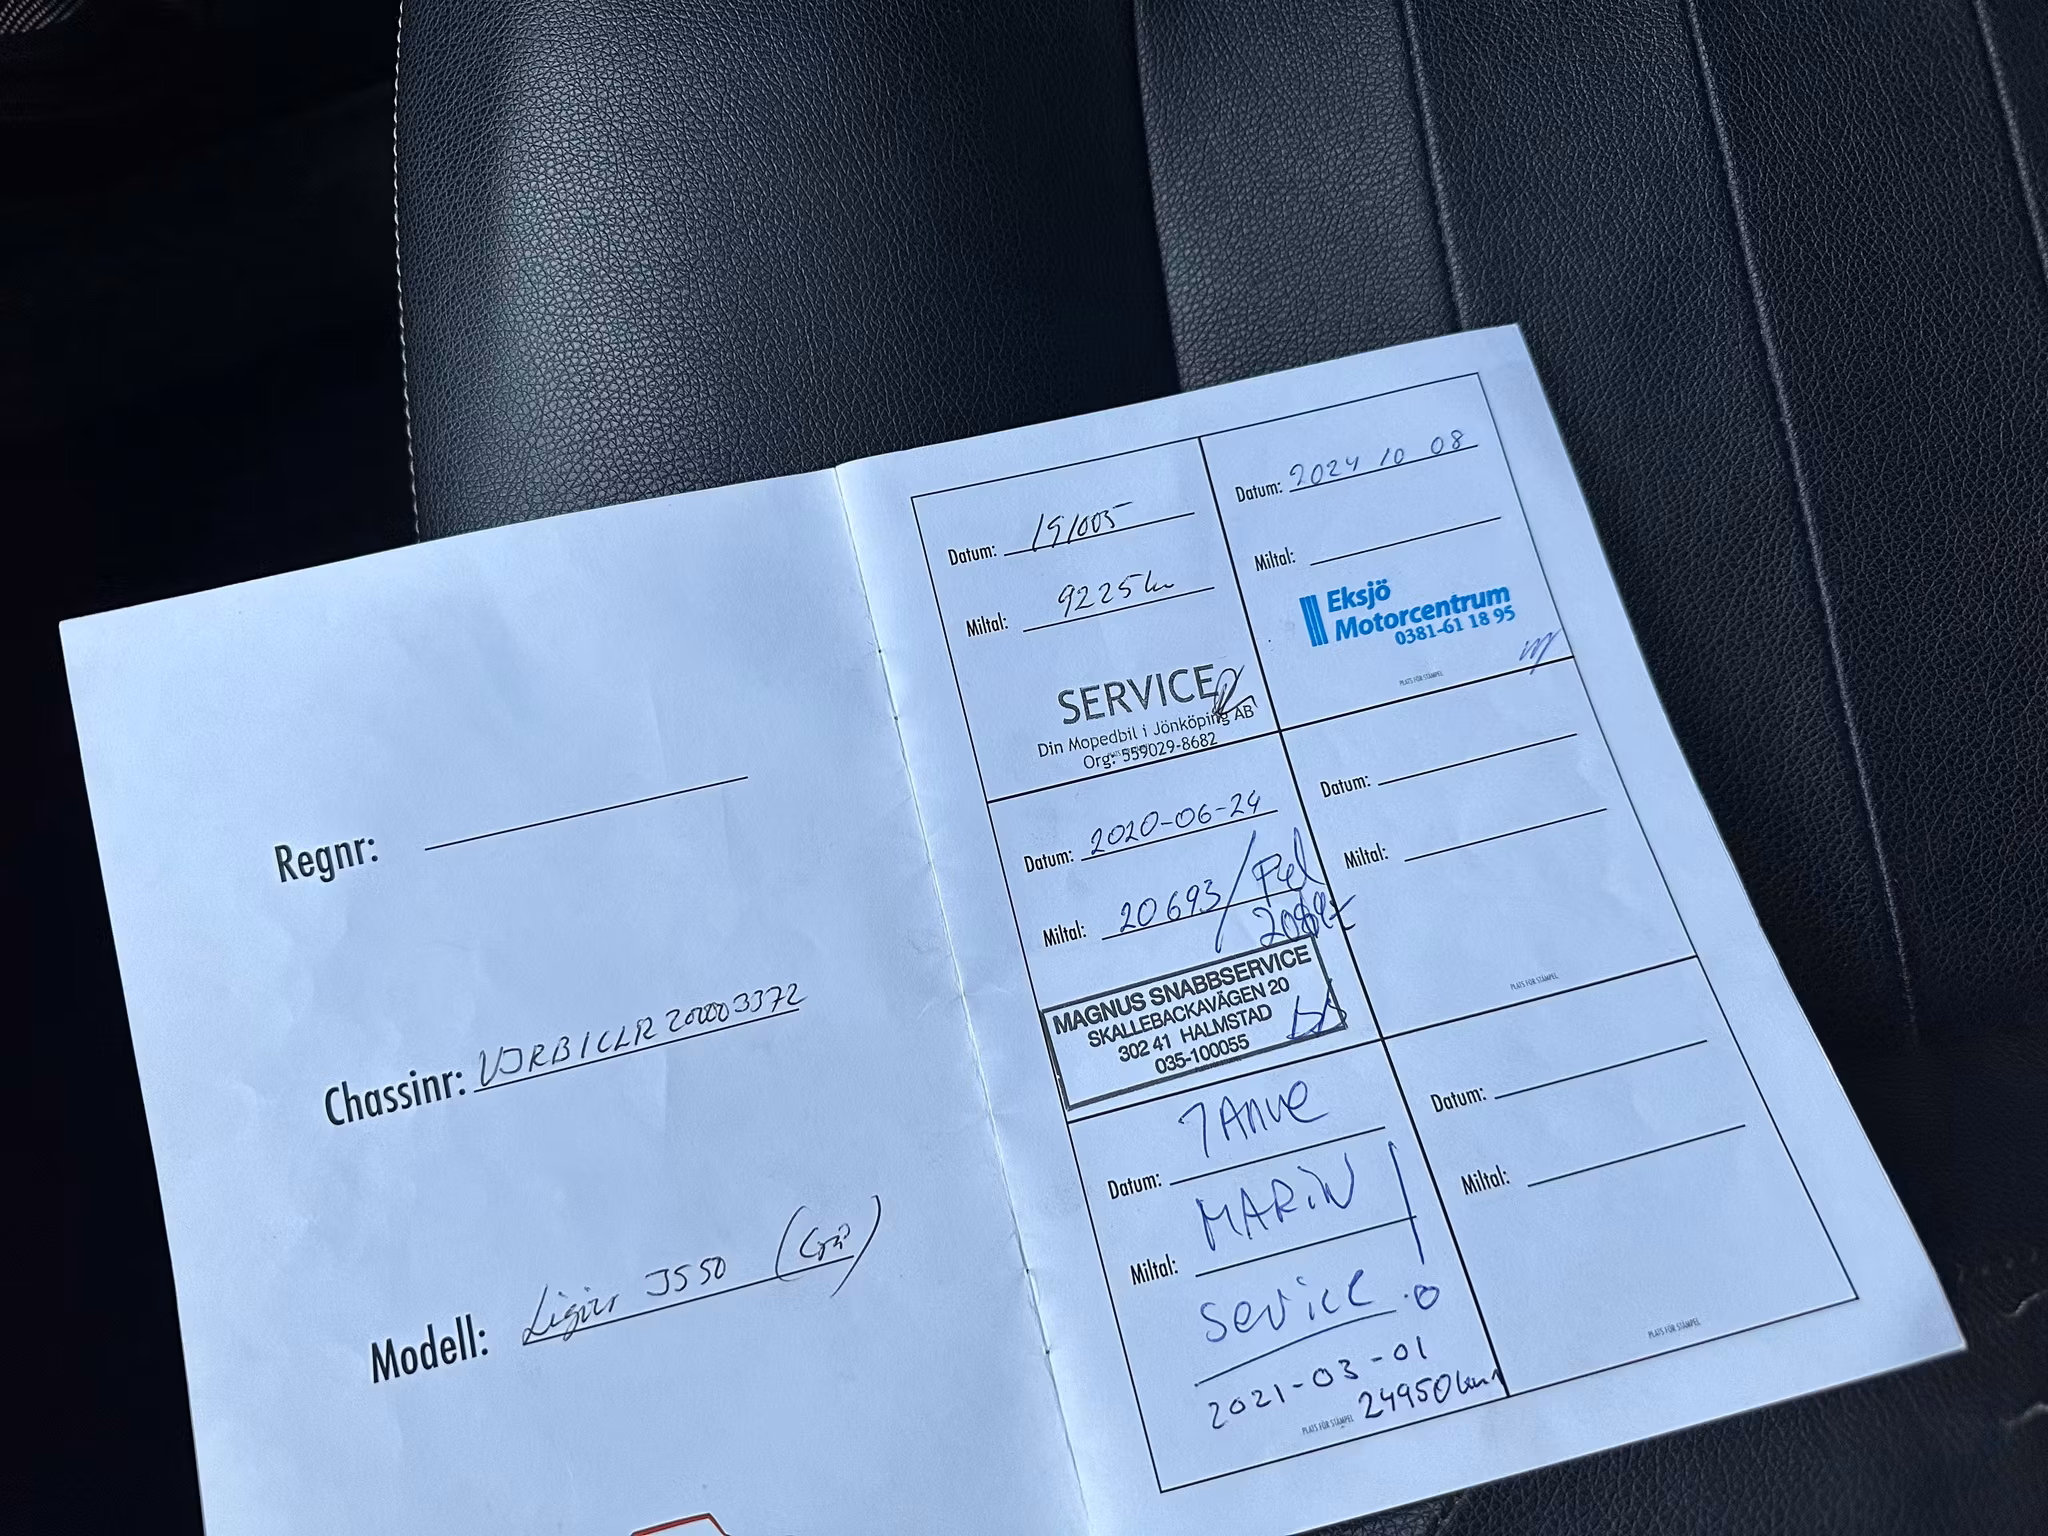 Regnr:
Chassinr: VJRB1CLR200003372
Modell: Ligier JS50 (Grå)
Datum: 191005
Miltal: 9225 km
SERVICE
Din Mopedbil i Jönköping AB
Org: 559029-8682
Datum: 2020-06-24
Miltal: 20693 / Fel
MAGNUS SNABBSERVICE
SKALLEBACKAVÄGEN 20
302 41 HALMSTAD
035-100055
Datum:
MARIN
Miltal:
Service
2021-03-01
PLATS FÖR STÄMPEL
24950 km
Datum: 2024 10 08
Miltal:
Eksjö
Motorcentrum
0381-61 18 95
PLATS FÖR STÄMPEL
Datum:
Miltal:
PLATS FÖR STÄMPEL
Datum:
Miltal:
PLATS FÖR STÄMPEL